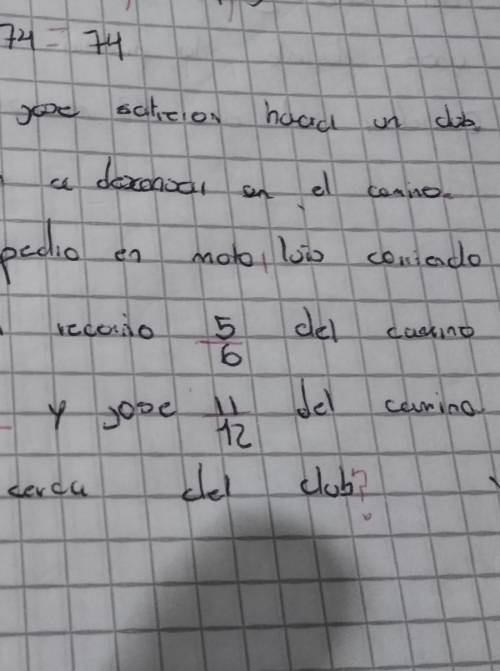 74 = 74
jose salieron hacia un club
a descansar en el camino.
pedro en moto, luis corriendo
recorrio 5/6 del camino
y jose 11/12 del camino
cerca del club?